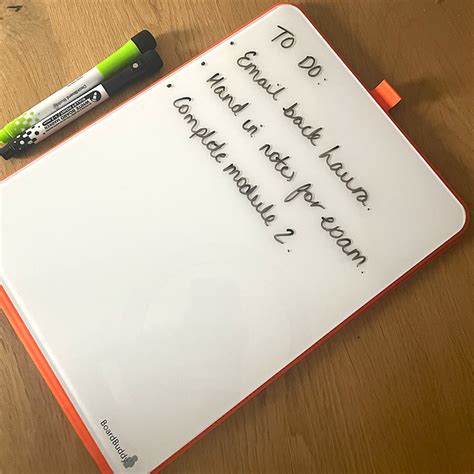 TO DO:
• Email back Laura.
• Hand in notes for exam.
• Complete module 2.
BoardBuddy